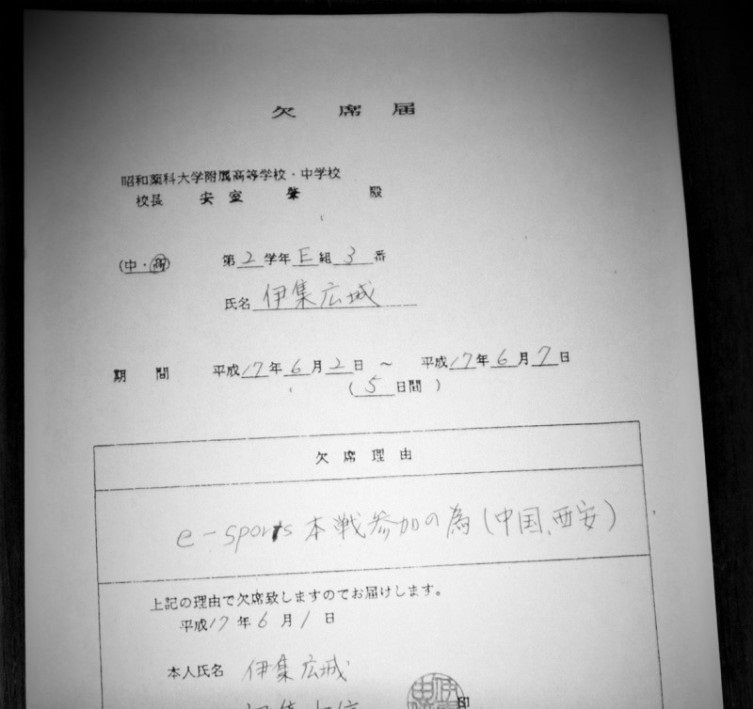 欠席届
昭和薬科大学附属高等学校・中学校
校長 安室 肇 殿
(中・高) 第2学年E組3番
氏名 伊集広城
期間 平成17年6月2日 ~ 平成17年6月7日
(5日間)
欠席理由
e-sports本戦参加の為(中国、西安)
上記の理由で欠席致しますのでお届けします。
平成17年6月1日
本人氏名 伊集広城
印